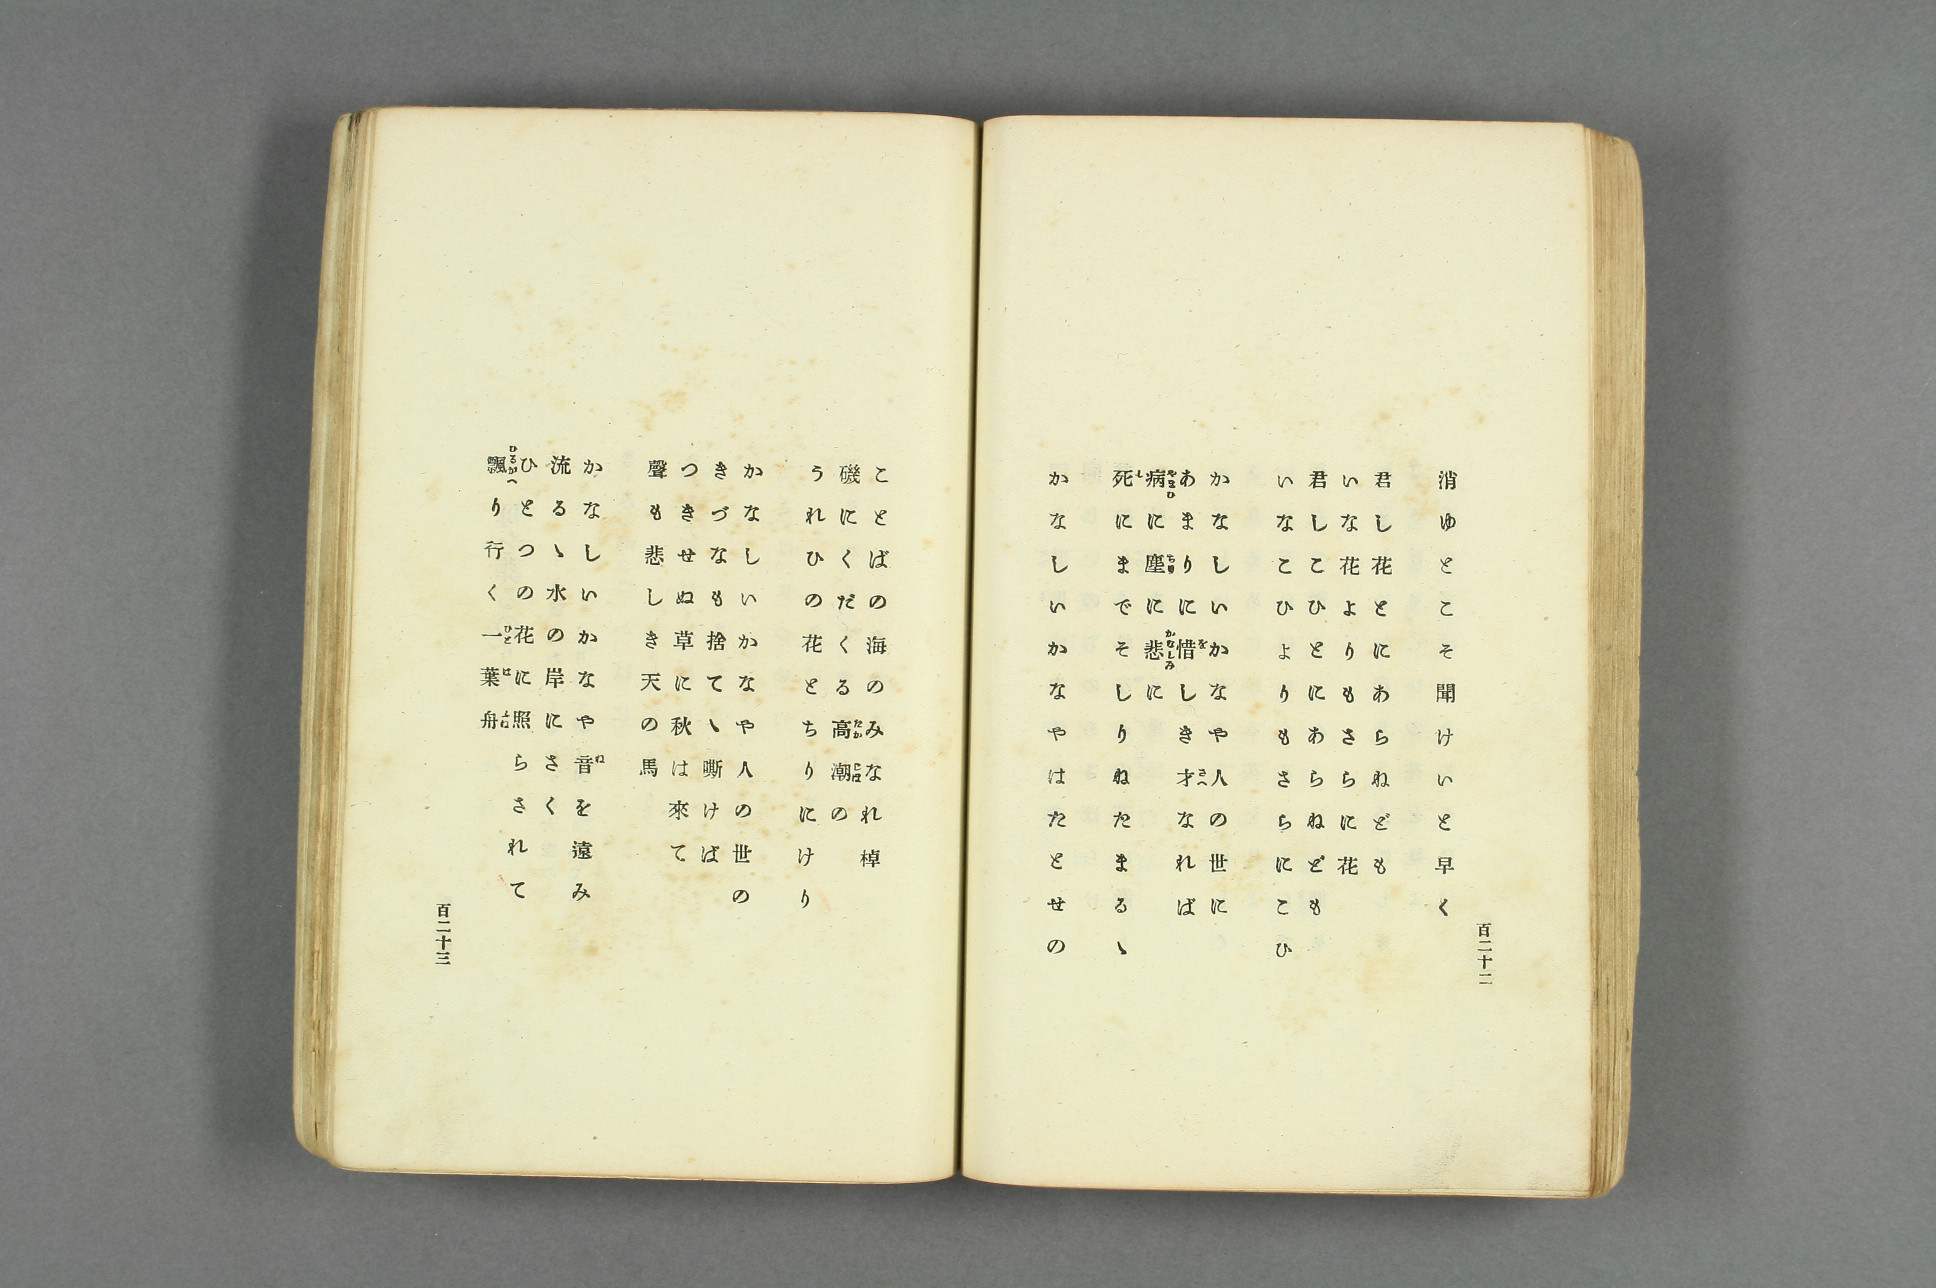 消ゆとこそ聞けいと早く
君し花とにあらねども
いな花よりもさらに花
君しこひとにあらねども
いなこひよりもさらにこひ
かなしいかなや人の世に
あまりに惜しき才なれば
病に塵に悲に
死にまでそしりねたまるゝ
かなしいかなやはたとせの
百二十二
ことばの海のみなれ棹
磯にくだくる高潮の
うれひの花とちりにけり
かなしいかなや人の世の
きづなも捨てゝ嘶けば
つきせぬ草に秋は來て
聲も悲しき天の馬
かなしいかなや音を遠み
流るゝ水の岸にさく
ひとつの花に照らされて
飄り行く一葉舟
百二十三